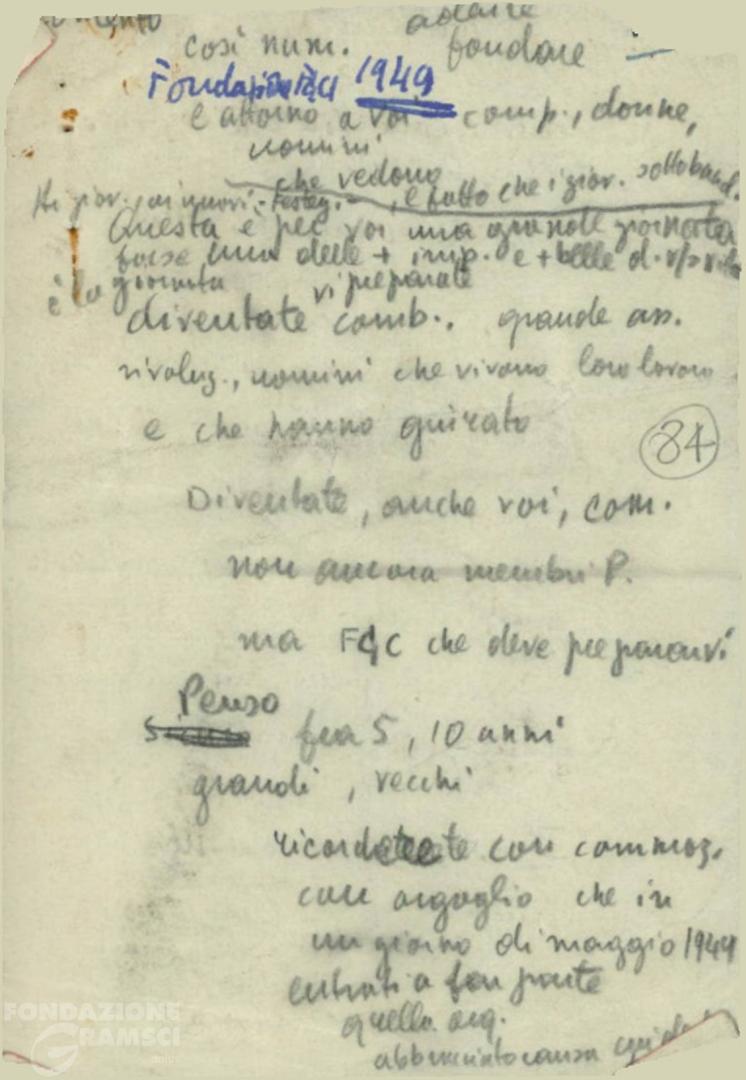 così num. fondare
Fondaz. FGCI 1949
e attorno a voi comp., donne,
uomini
che vedono
Festeg. -, e fatto che i giov. sottoband.
Questa è per voi una grande giornata
forse una delle + imp. e + belle d. v/ vita
è la giornata vi preparate
diventate comb.. grande ass.
rivoluz., uomini che vivono loro lavoro
e che hanno giurato
84
Diventate, anche voi, com.
non ancora membri P.
ma FGC che deve prepararvi
Penso
fra 5, 10 anni
grandi, vecchi
ricorderete con commoz.
con orgoglio che in
un giorno di maggio 1949
entrati a far parte
quella org.
abbracciato causa
FONDAZIONE
GRAMSCI